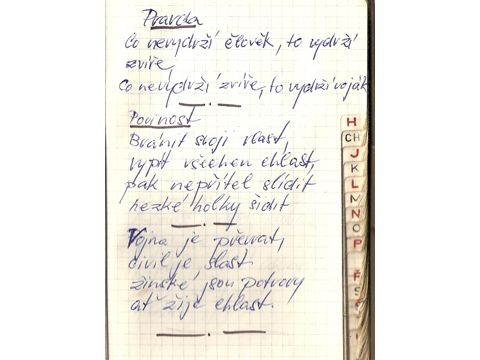 Pravda
Co nevydrží člověk, to vydrží
zvíře,
Co nevydrží zvíře, to vydrží voják
Povinost
Bránit svoji vlast,
vypít všechen chlast,
pak nepřítel slídit
hezké holky šidit
Vojna je převrat,
civil je slast
žinské jsou potvory
ať žije chlast.
H
CH
J
K
L
M
N
O
P
Ř
S